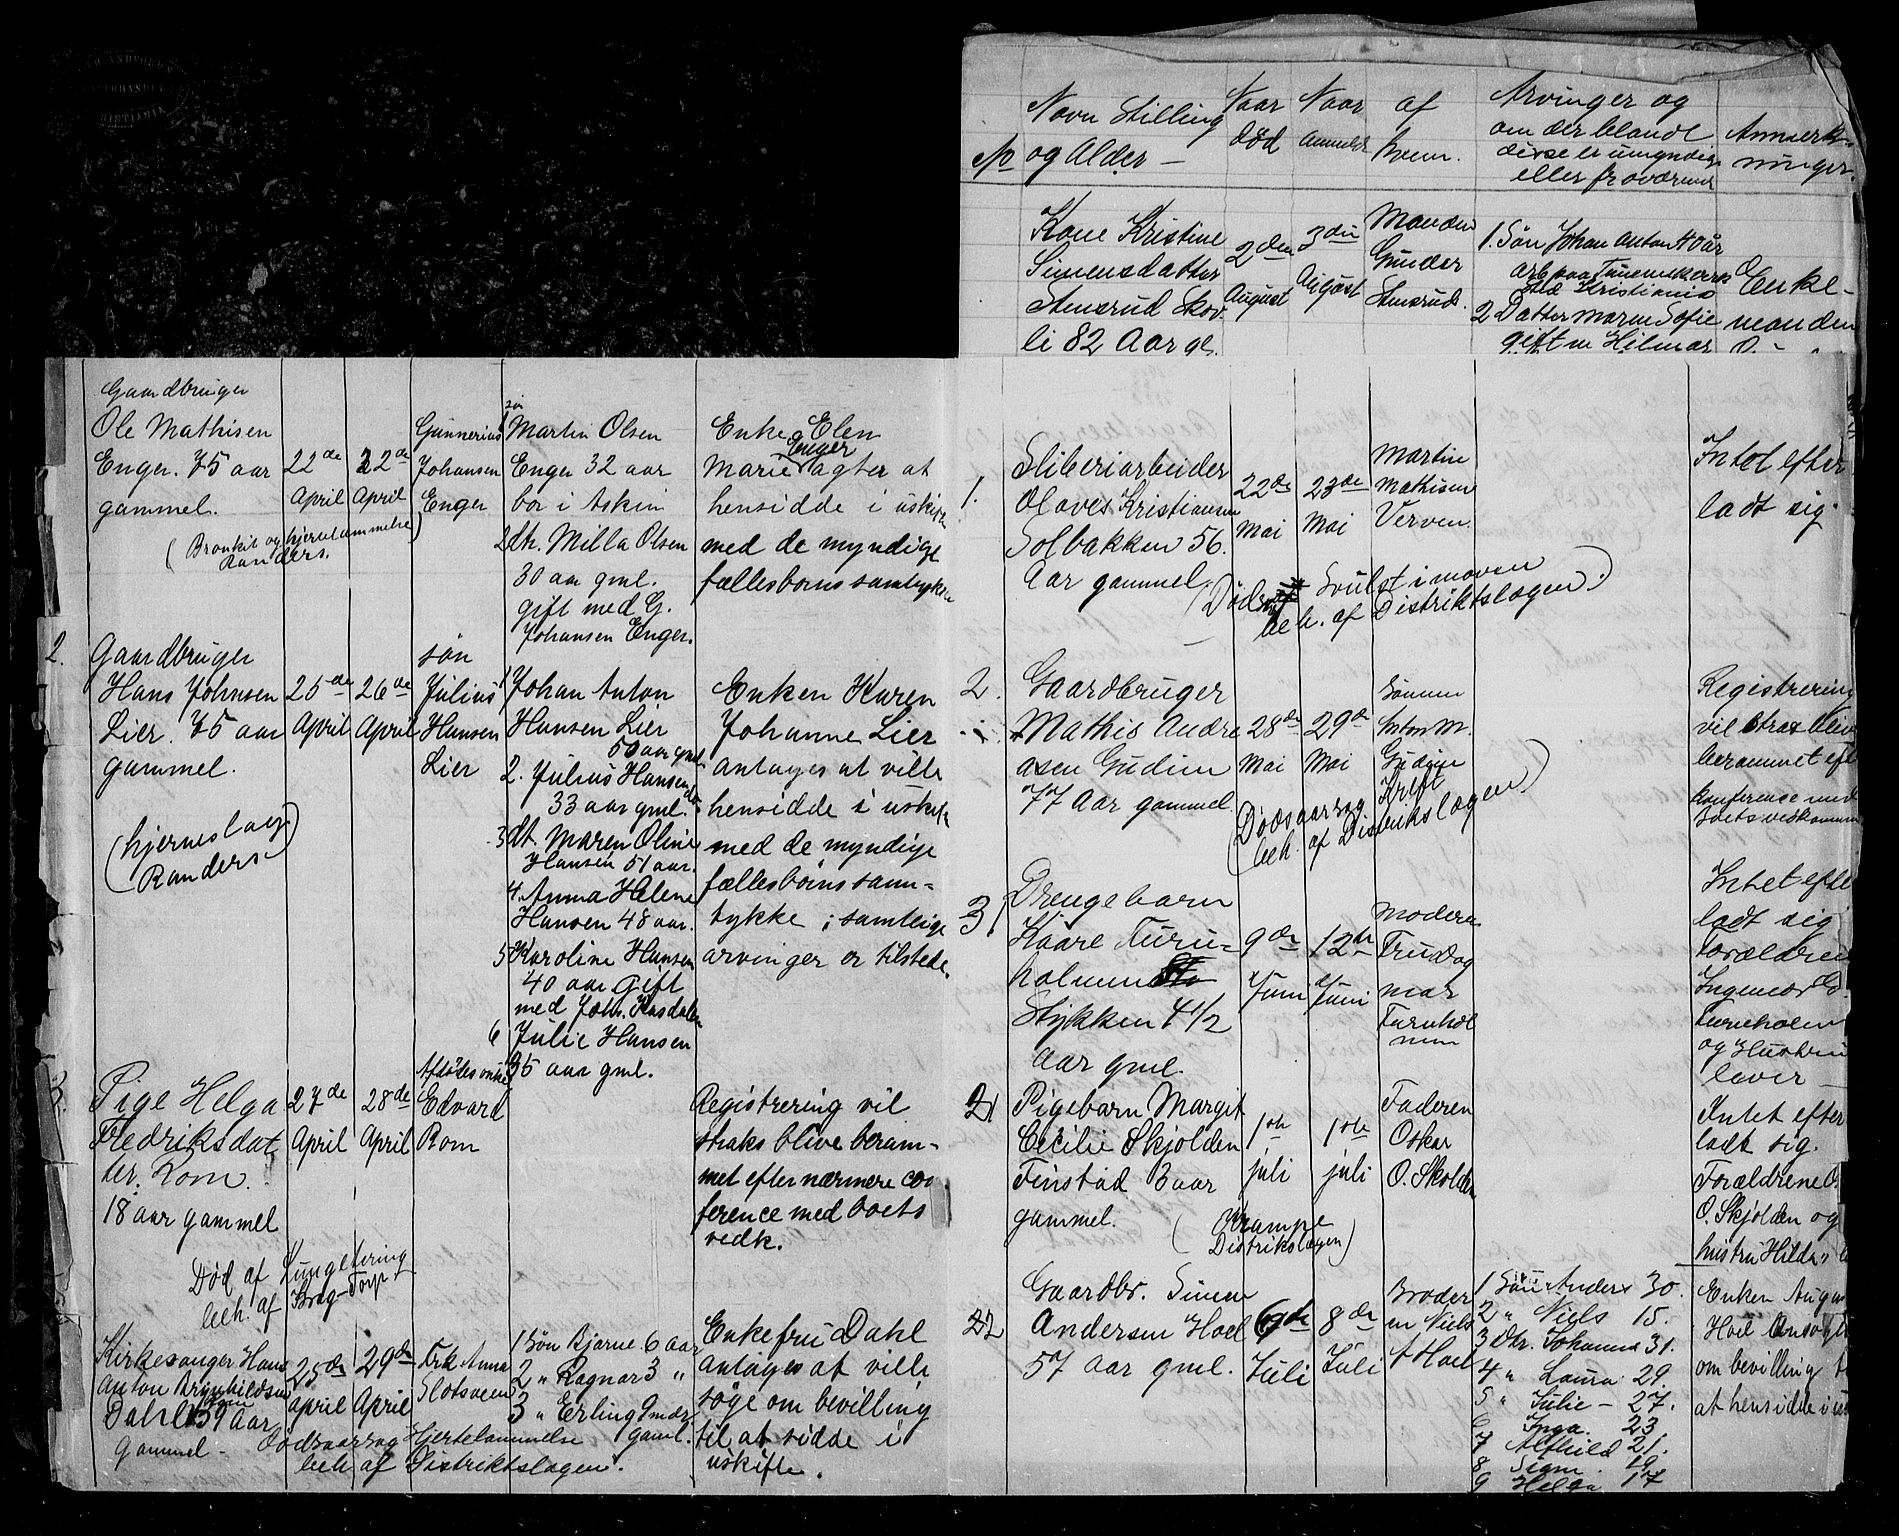 No
Navn Stilling
og Alder —
Naar
død
Naar
anmeldt
af
hvem.
Arvinger og
om der blandt
disse er umyndige
eller fraværende
Anmærk-
ninger.
Kone Kristine
Simensdatter
Stensrud Skov-
li 82 Aar gl.
2den
August
3die
August
Manden
Gunder
Stensrud.
1. Søn Johan Anton 40 aar
Kristiania
2 Datter Maren Sofie
gift m Hilmar
Enke-
manden
Gaardbruger
Ole Mathisen
Enger. 75 aar
gammel.
(Bronkit og hjertelammelse)
Randers.
22de
April
22de
April
Gunnerius
Johansen
Enger
søn
1 Martin Olsen
Enger 32 aar
bor i Askim
2 dtr. Milla Olsen
30 aar gml.
gift med G.
Johansen Enger.
Enke Elen
Marie Enger agter at
hensidde i uskifte
med de myndige
fællesbørns samtykke
2.
Gaardbruger
Hans Johnsen
Lier. 75 aar
gammel.
(hjerneslag)
Randers
25de
April
26de
April
søn
Julius
Hansen
Lier
1 Johan Anton
Hansen Lier
50 aar gml.
2. Julius Hansen
33 aar gml.
3 dt. Maren Oline
Hansen 51 aar.
4. Anna Helene
Hansen 48 aar.
5 Karoline Hansen
40 aar gift
med Johs.
6 Julie Hansen
35 aar gml.
Enken Karen
Johanne Lier
antages at ville
hensidde i uskifte
med de myndige
fællesbørns sam-
tykke; samtlige
arvinger er tilstede.
3.
Pige Helga
Fredriksdat-
ter. Rom.
18 aar gammel
Død af Lungetæring
beh. af
27de
April
28de
April
Afdødes onkel
Edvard
Rom
Registrering vil
straks blive beram-
met efter nærmere con-
ference med boets
vedk.
Kirkesanger Hans
Anton Brynhildsen
Dahl 59 Aar
gammel -
25de
april
29de
April
Frk Anna
Slotsveen
1 Søn Bjarne 6 aar
2 " Ragnar 3 "
3 " Erling 9 mdr.
gaml.
Dødsaarsag Hjertelammelse
beh af Distriktslægen.
Enkefru Dahl
antages at ville
søge om bevilling
til at sidde i
uskifte.
1.
Sliberiarbeider
Olaves Kristiansen
Solbakken 56.
Aar gammel.
22de
Mai
23de
Mai
Martin
Mathisen
Verven.
(Døds Svulst i maven
beh. af Distriktslægen.)
Intet efter-
ladt sig.
2.
Gaardbruger
Mathis Andre
asen Gudim
77 Aar gammel
28de
Mai
29de
Mai
Sønnen
Anton M.
Gudim
(Dødsaarsag Kreft
beh. af Distriktslægen)
Registrering
vil strax blive
berammet eft
konference med
boets vedkommen
3
Drengebarn
Kaare Furu-
holmen
Stykken 4 1/2
Aar gml.
9de
Juni
12te
Juni
Moderen
Fru Dag
mar
Furuhol
men
Intet efter
ladt sig
Forældrene
Ingeniør
Furuholmen
og Hustru
lever
21
Pigebarn Margit
Cecilie Skjolden
Finstad 3 aar
gammel.
1ste
juli
1ste
juli
Faderen
Oskar
O. Skolden
(Krampe
Distriktslægen)
Intet efter
ladt sig.
Forældrene O.
O. Skjolden og
hustru Hilda
22
Gaardbr. Simen
Andersen Hoel
57 aar gml.
6te
Juli
8de
Juli
Broder
en Niels
A Hoel
1 Søn Anders 30.
2 " Niels 15.
3 Dtr. Johanna 31.
4 " Laura 29.
5 " Julie - 27.
6 Inga. 23
7 Alfhild 21.
8 Signe. 19.
9 Helga 17
Enken
Hoel Ansøgt
om bevilling t
at hensidde i us